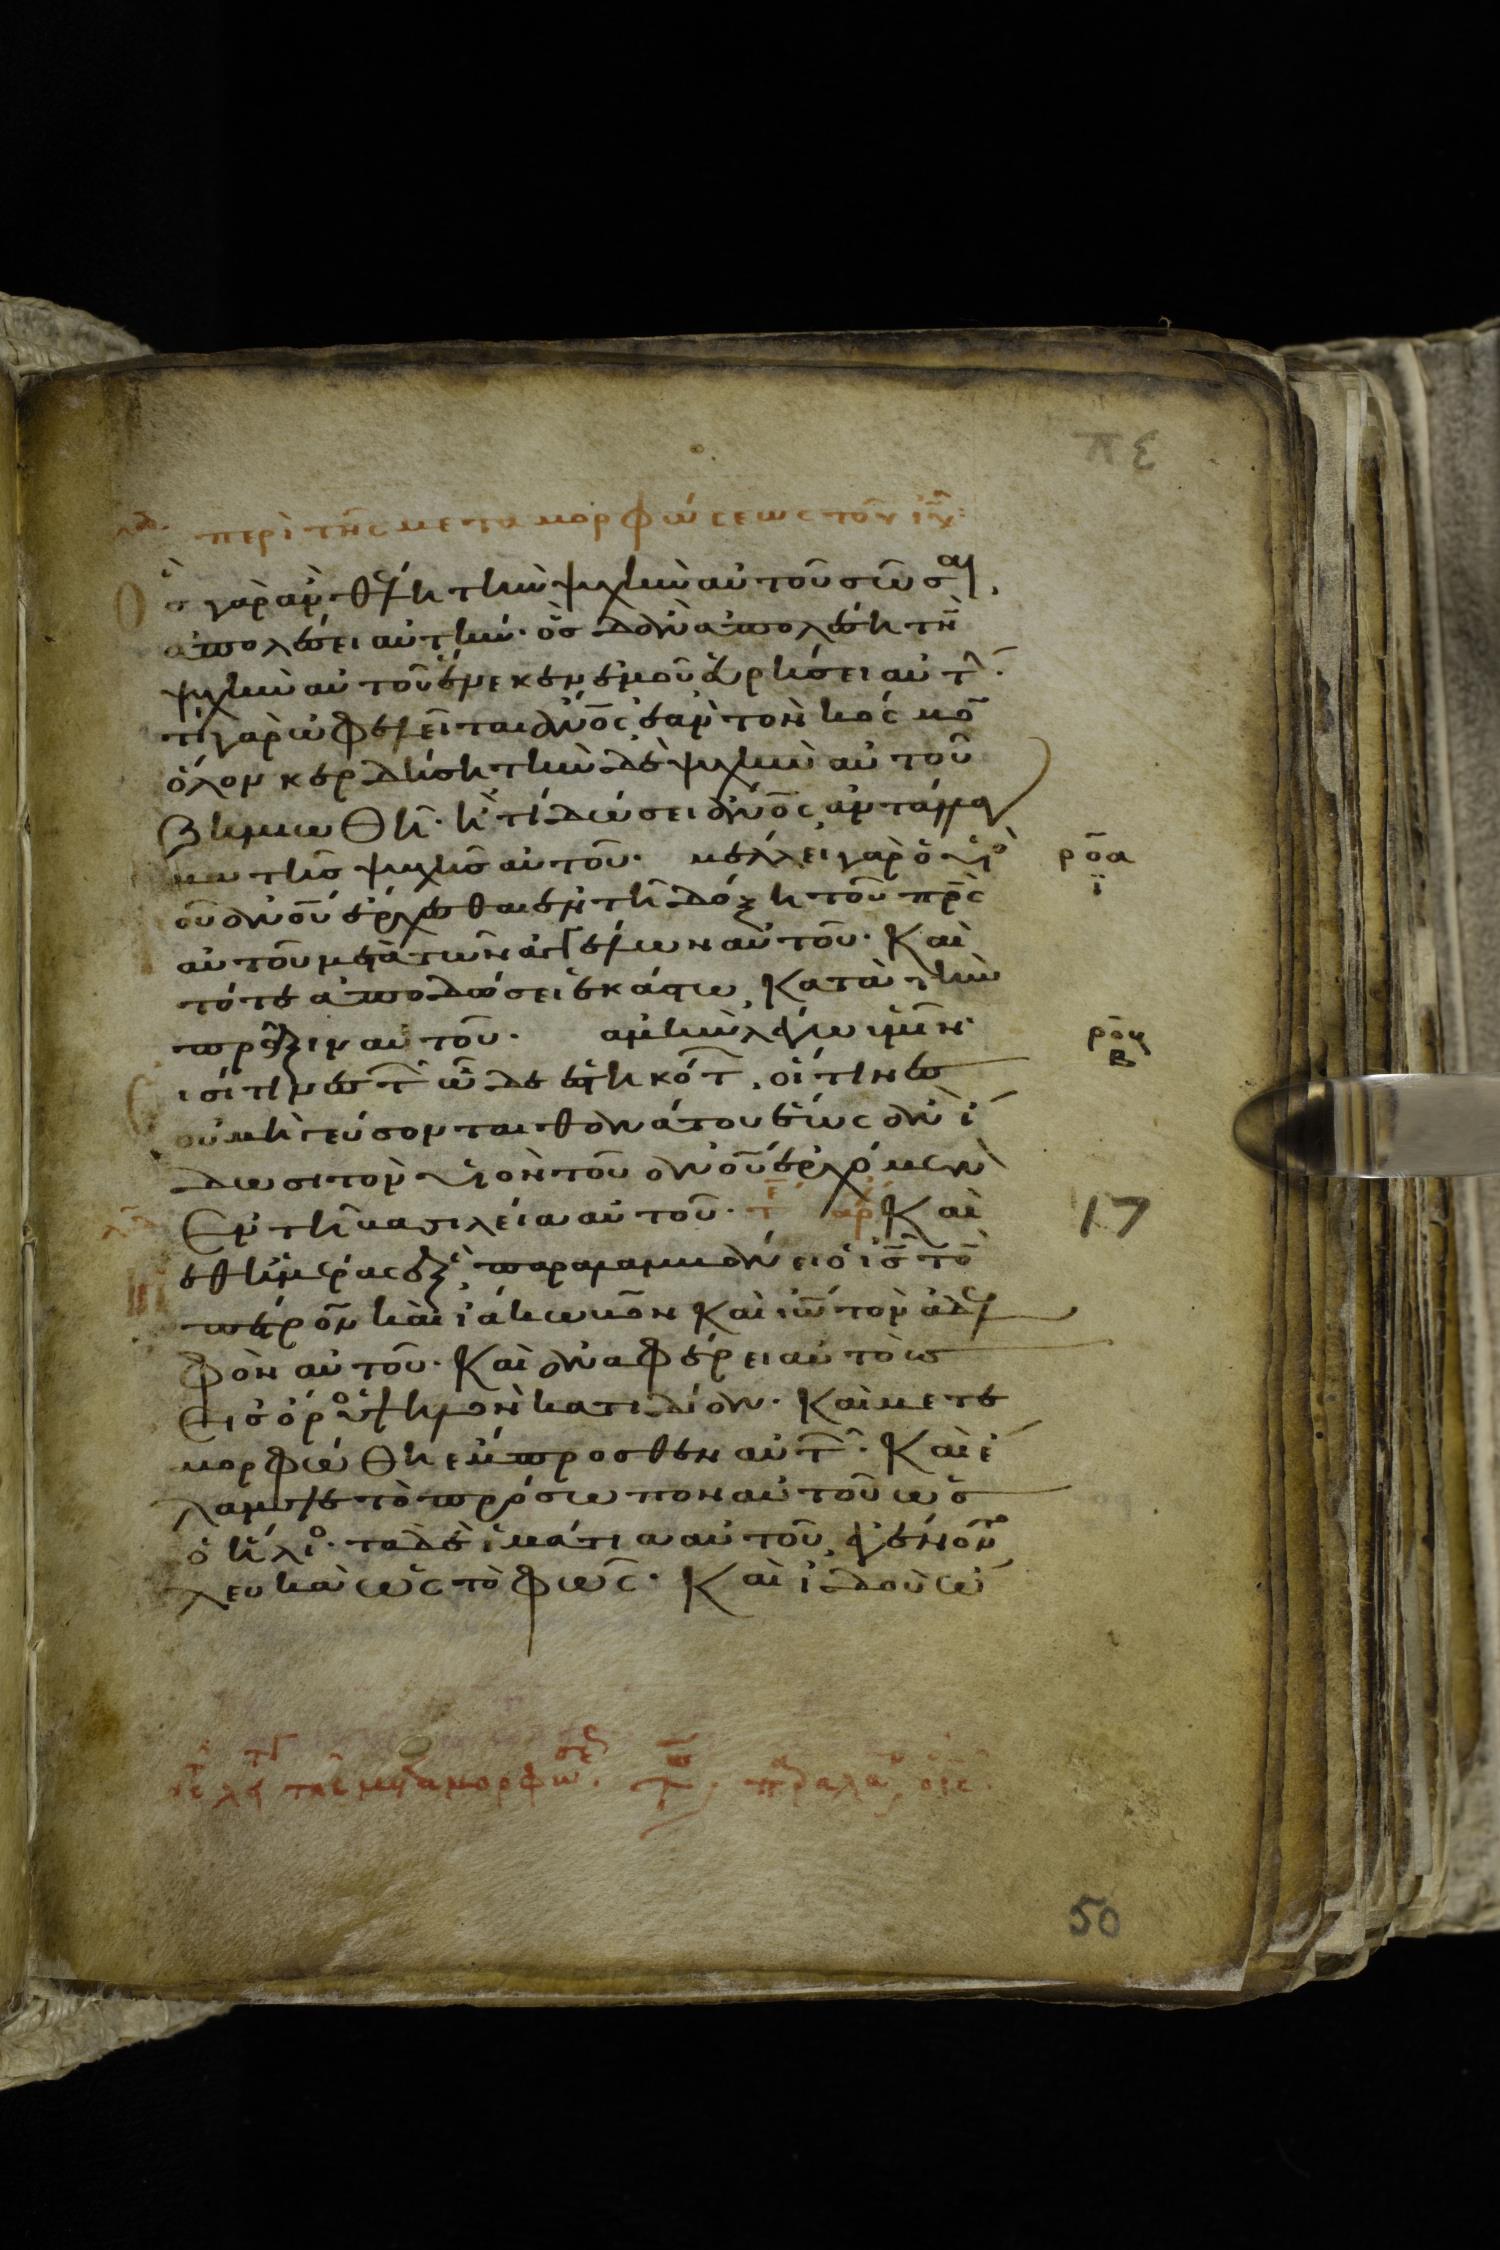 πε
λδ. περὶ τῆς μεταμορφώσεως τοῦ ιυ χυ:
ὃσ γὰρ ἂν θέλη τὴν ψυχὴν αὐτοῦ σῶσαι,
ἀπολέσει αὐτήν· ὃσ δ' ἂν ἀπολέση τὴν
ψυχὴν αὐτοῦ ἕνεκεν ἐμοῦ εὑρήσει αὐτ·
τί γὰρ ὠφελεῖται ἀνο̅ς ἐὰν τὸν κόσμο̅
ὅλον κερδήση τὴν δὲ ψυχὴν αὐτοῦ
ζημιωθῆ· ἢ τί δώσει ἀνο̅ς ἀντάλλαγ
μα τῆς ψυχῆς αὐτοῦ· μέλλει γὰρ ὁ υἱὸ
ροα
ϊ
οῦ ἀνο̅υ ἔρχεσθαι ἐν τῆ δόξη τοῦ πρ̅ς
αὐτοῦ μετὰ τῶν ἀγγέλων αὐτοῦ· Καὶ
τότε ἀποδώσει ἑκάστω, Κατὰ τὴν
πρᾶξιν αὐτοῦ· ἀμὴν λέγω ὑμῖν
ροβ
β
ισί τινες τ ὧδε ἑστηκότ, οἵτινες
οὐ μὴ γεύσονται θανάτου ἕως ἂν ἴ
δωσι τὸν υἱὸν τοῦ ἀνο̅υ ἐρχόμενον
Ἐν τῆ βασιλεία αὐτοῦ· τε αρχ Καὶ
17
εθ ἡμέρας ἓξ παραλαμβάνει ὁ ι̅ς τὸ
πέτρον καὶ ἰάκωβον Καὶ ἰω̅ τὸν ἀδελ
φὸν αὐτοῦ· Καὶ ἀναφέρει αὐτοὺς
Εἰσ ὄροσ ὑψηλὸν κατιδίαν· Καὶ μετε
μορφώθη ἔμπροσθεν αὐτ· Καὶ ἔ
λαμψε τὸ πρόσωπον αὐτοῦ ὡς
ὁ ἥλιο· τὰ δὲ ἱμάτια αὐτοῦ ἐγένοντο
λευκὰ ὡς τὸ φῶς· Καὶ ἰδοὺ ὤ
50